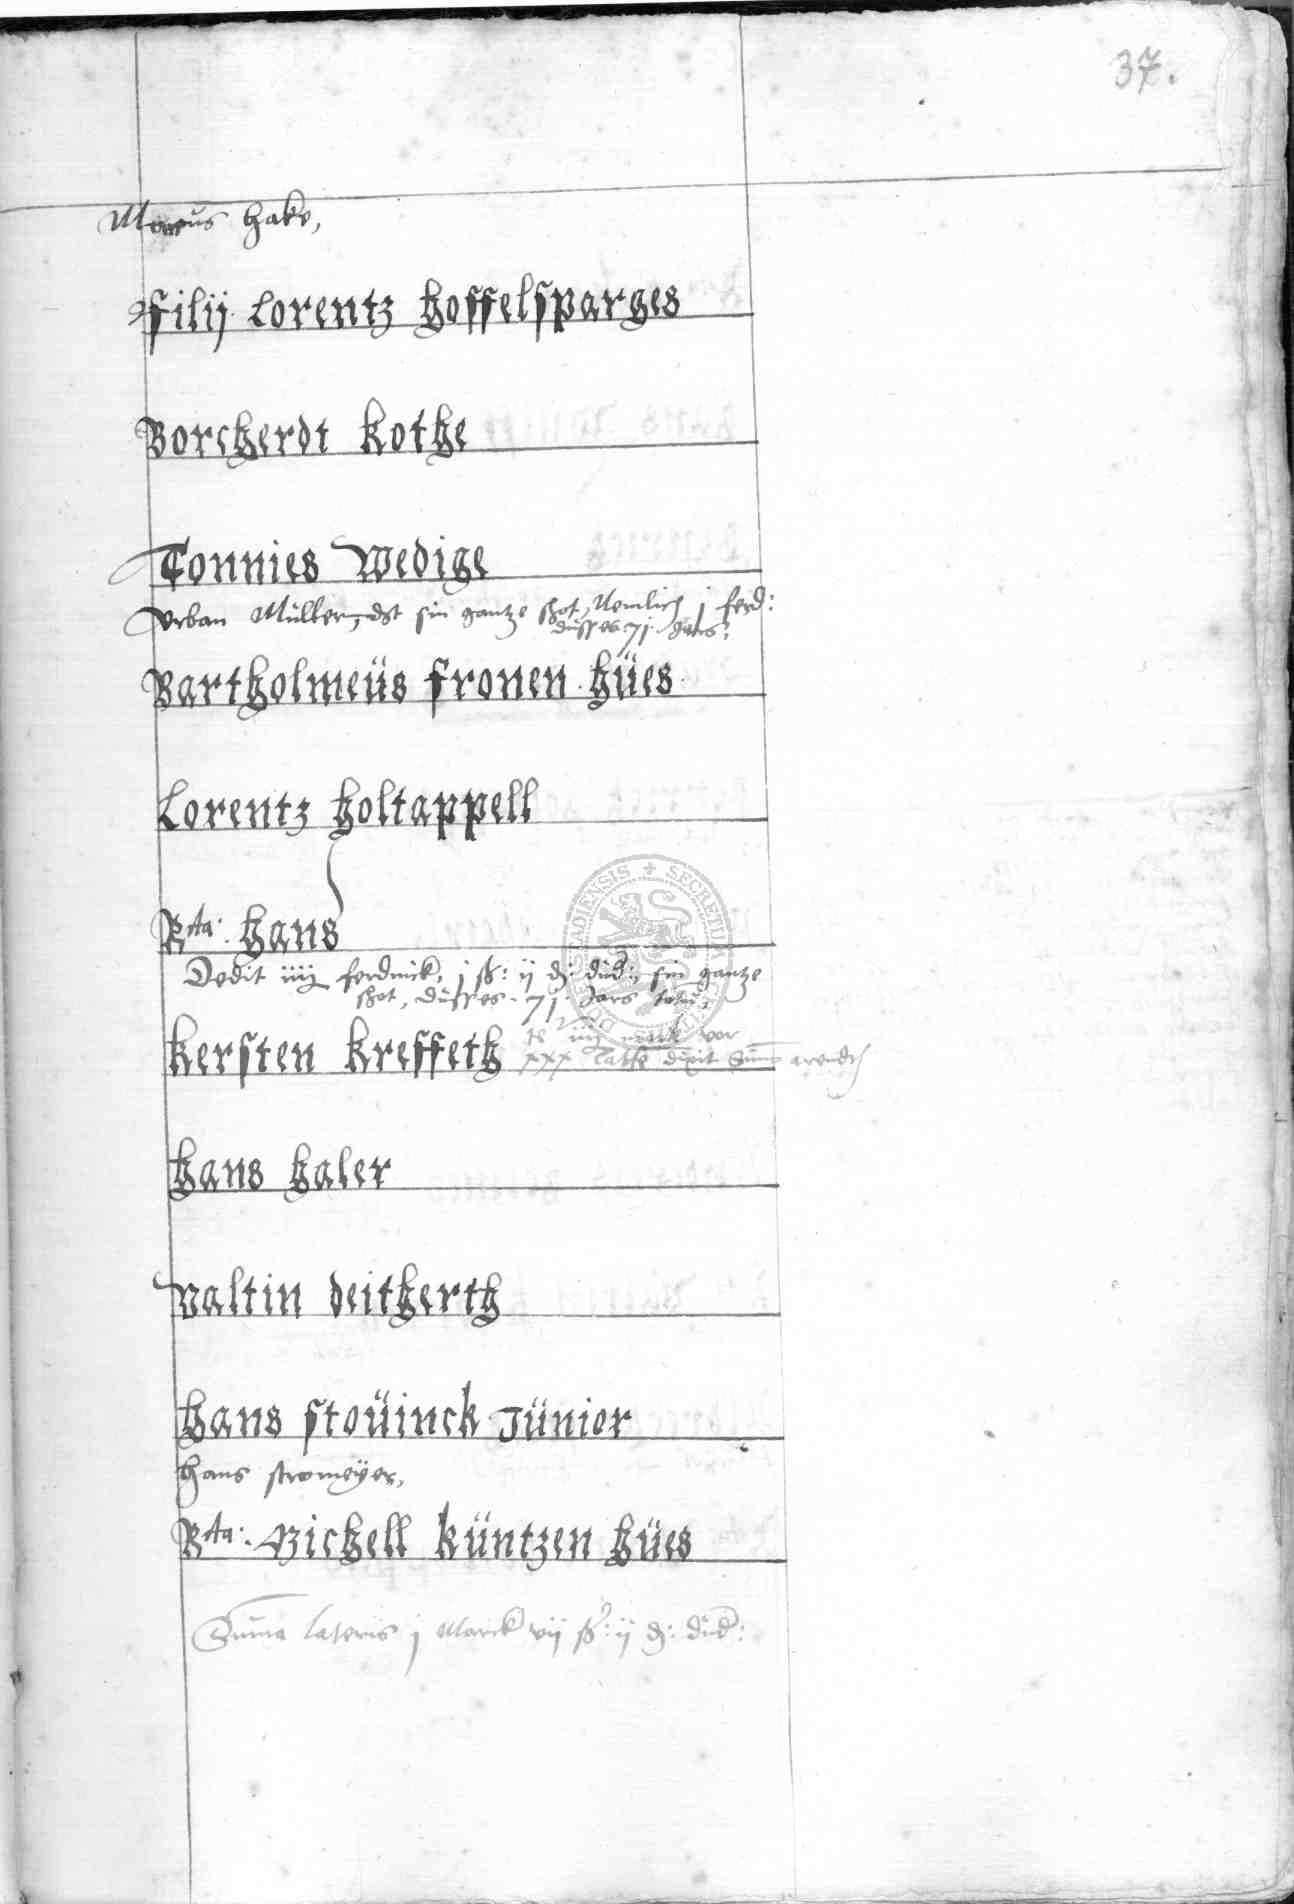 37.
Marcus Hake,
Filij Lorentz Hosselsparges
Borcherdt Kothe
Tonnies Wedige
Urban Müller, dt sin gantze shot, Nemlich j ferd:
düsses 71. Jars:
Bartholmeüs fronen hües
Lorentz Holtappell
Rta: Hans
Dedit iiij ferdinck, j ß: ij d: düd:, sin gantze
shot, düsses . 71 . Jars
Kersten Kreffeth
iiij marck vor
xxx
Hans Haler
Valtin Deitherth
Hans Stoüinck Jünior
Hans Stromeÿer,
Rta: Michell Küntzen hües
Suma lateris j Marck vij ß: ij d: düd:
SECRETUM